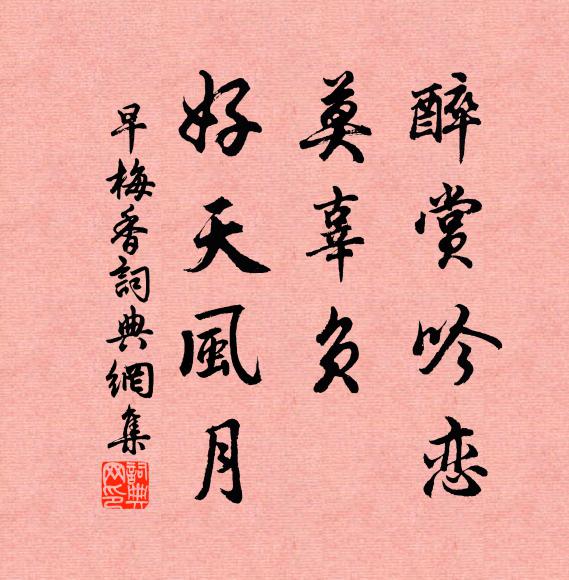 醉赏吟恋
莫辜负
好天風月
早梅香詞典網集
詞典网印